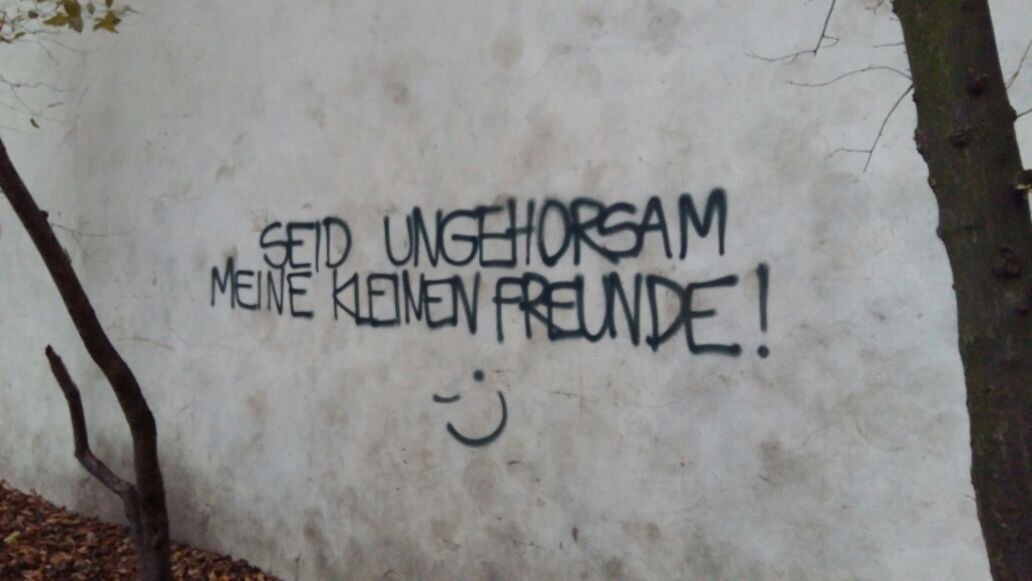 SEID UNGEHORSAM
MEINE KLEINEN FREUNDE!